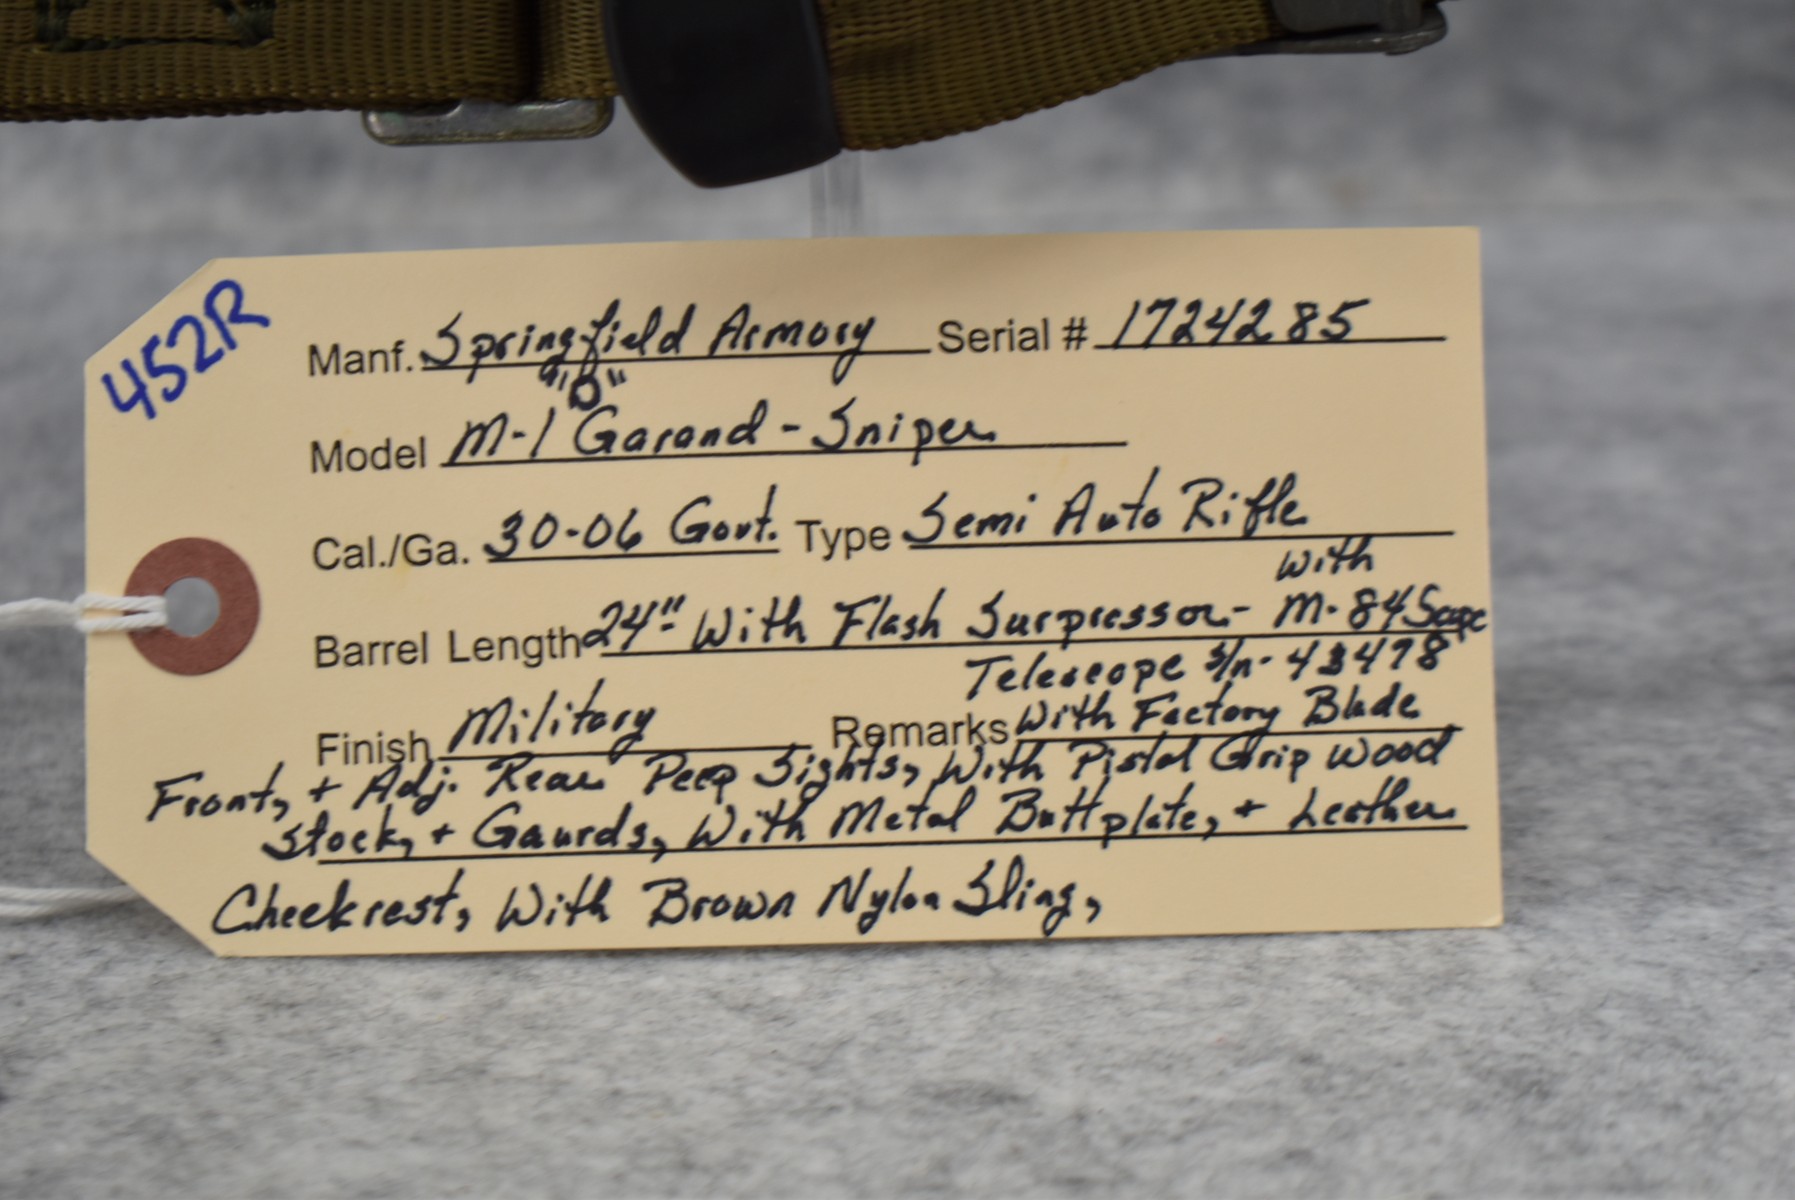 452R
Manf. Springfield Armory Serial # 1724285
"D"
Model M-1 Garand - Sniper
Cal./Ga. 30-06 Govt. Type Semi Auto Rifle
with
Barrel Length 24" With Flash Surpressor - M-84 Scope
Telescope s/n - 43478
Finish Military Remarks With Factory Blade
Front, + Adj. Rear Peep Sights, With Pistol Grip Wood
Stock, + Gaurds, With Metal Buttplate, + Leather
Cheekrest, With Brown Nylon Sling,